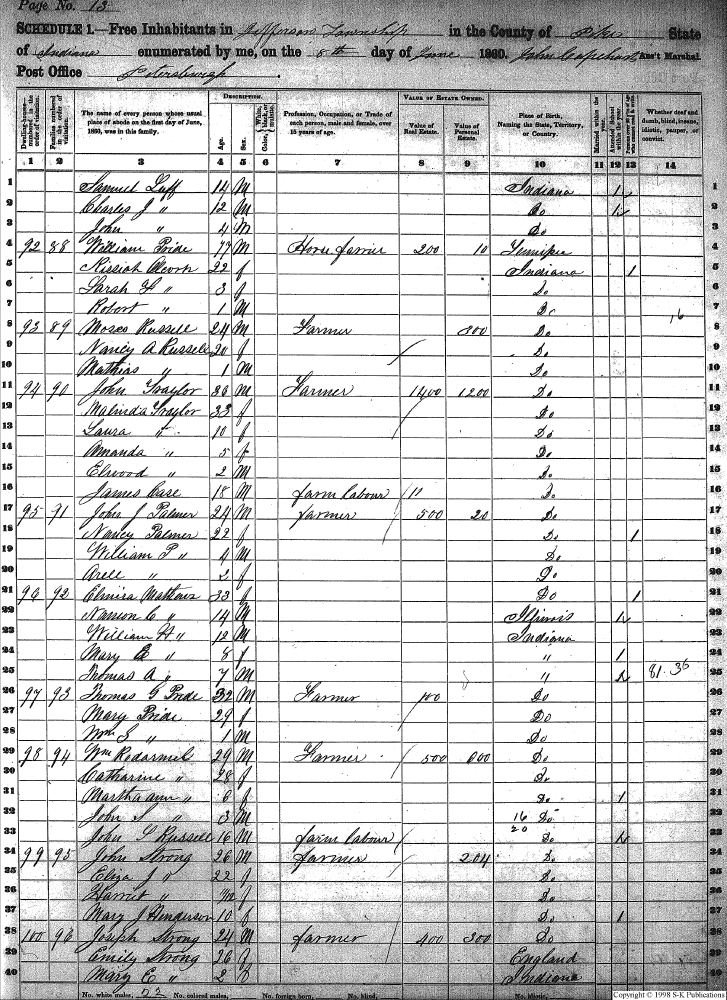 Page No. 13
SCHEDULE 1.—Free Inhabitants in Jefferson Township in the County of Pike State
of Indiana enumerated by me, on the 8th day of June 1860. John Capehart Ass't Marshal.
Post Office Petersburgh.
DESCRIPTION. VALUE OF ESTATE OWNED.
Dwelling-houses—numbered in the order of visitation. Families numbered in the order of visitation. The name of every person whose usual place of abode on the first day of June, 1860, was in this family. Age. Sex. Color, White, black, or mulatto. Profession, Occupation, or Trade of each person, male and female, over 15 years of age. Value of Real Estate. Value of Personal Estate. Place of Birth, Naming the State, Territory, or Country. Married within the year. Attended School within the year. Whether deaf and dumb, blind, insane, idiotic, pauper, or convict.
1 2 3 4 5 6 7 8 9 10 11 12 13 14
1 Samuel Luff 14 M Indiana 1 1
2 Charles J " 12 M Do 1 2
3 John " 4 M Do 3
4 92 88 William Pride 77 M Horse farrier 200 10 4
5 22 f Indiana 1 5
6 Sarah " 3 f Do 6
7 Robert " 1 M Do 7
8 93 89 Moses Russell 24 M Farmer 300 Do 16 8
9 Nancy A Russell 20 f Do 9
10 Mathias " 1 M Do 10
11 94 90 John Traylor 36 M Farmer 1400 1200 Do 11
12 Malinda Traylor 33 f Do 12
13 Laura " 10 f Do 13
14 Amanda " 5 f Do 14
15 Elwood " 2 M Do 15
16 James Case 18 M farm labour Do 16
17 95 91 John J Palmer 24 M farmer 500 20 Do 17
18 Nancy Palmer 22 f Do 1 18
19 William P " 4 M Do 19
20 " 2 f Do 20
21 96 92 Elmira Mathews 33 f Do 1 21
22 C " 14 M Illinois 1 22
23 William H " 12 M Indiana 23
24 Mary E " 8 f " 1 24
25 Thomas A " 7 M " 1 81.35 25
26 97 93 Thomas G Pride 32 M Farmer 100 Do 26
27 Mary Pride 29 f Do 27
28 Wm S " 1 M Do 28
29 98 94 Wm Redarmel 29 M Farmer 500 600 Do 29
30 Catharine " 28 f Do 30
31 Martha ann " 6 f Do 1 31
32 John S " 3 M 16 Do 32
33 John G Russell 16 M farm labour 20 Do 1 33
34 99 95 John Strong 26 M farmer 204 Do 34
35 Eliza J " 22 f Do 35
36 Harriet " f Do 36
37 Mary J Henderson 10 f Do 1 37
38 100 96 Joseph Strong 24 M farmer 400 300 Do 38
39 Emily Strong 26 f England 39
40 Mary E " 2 f Indiana 40
No. white males, 22 No. colored males, No. foreign born, No. blind, No. idiotic,
Copyright © 1998 S-K Publications